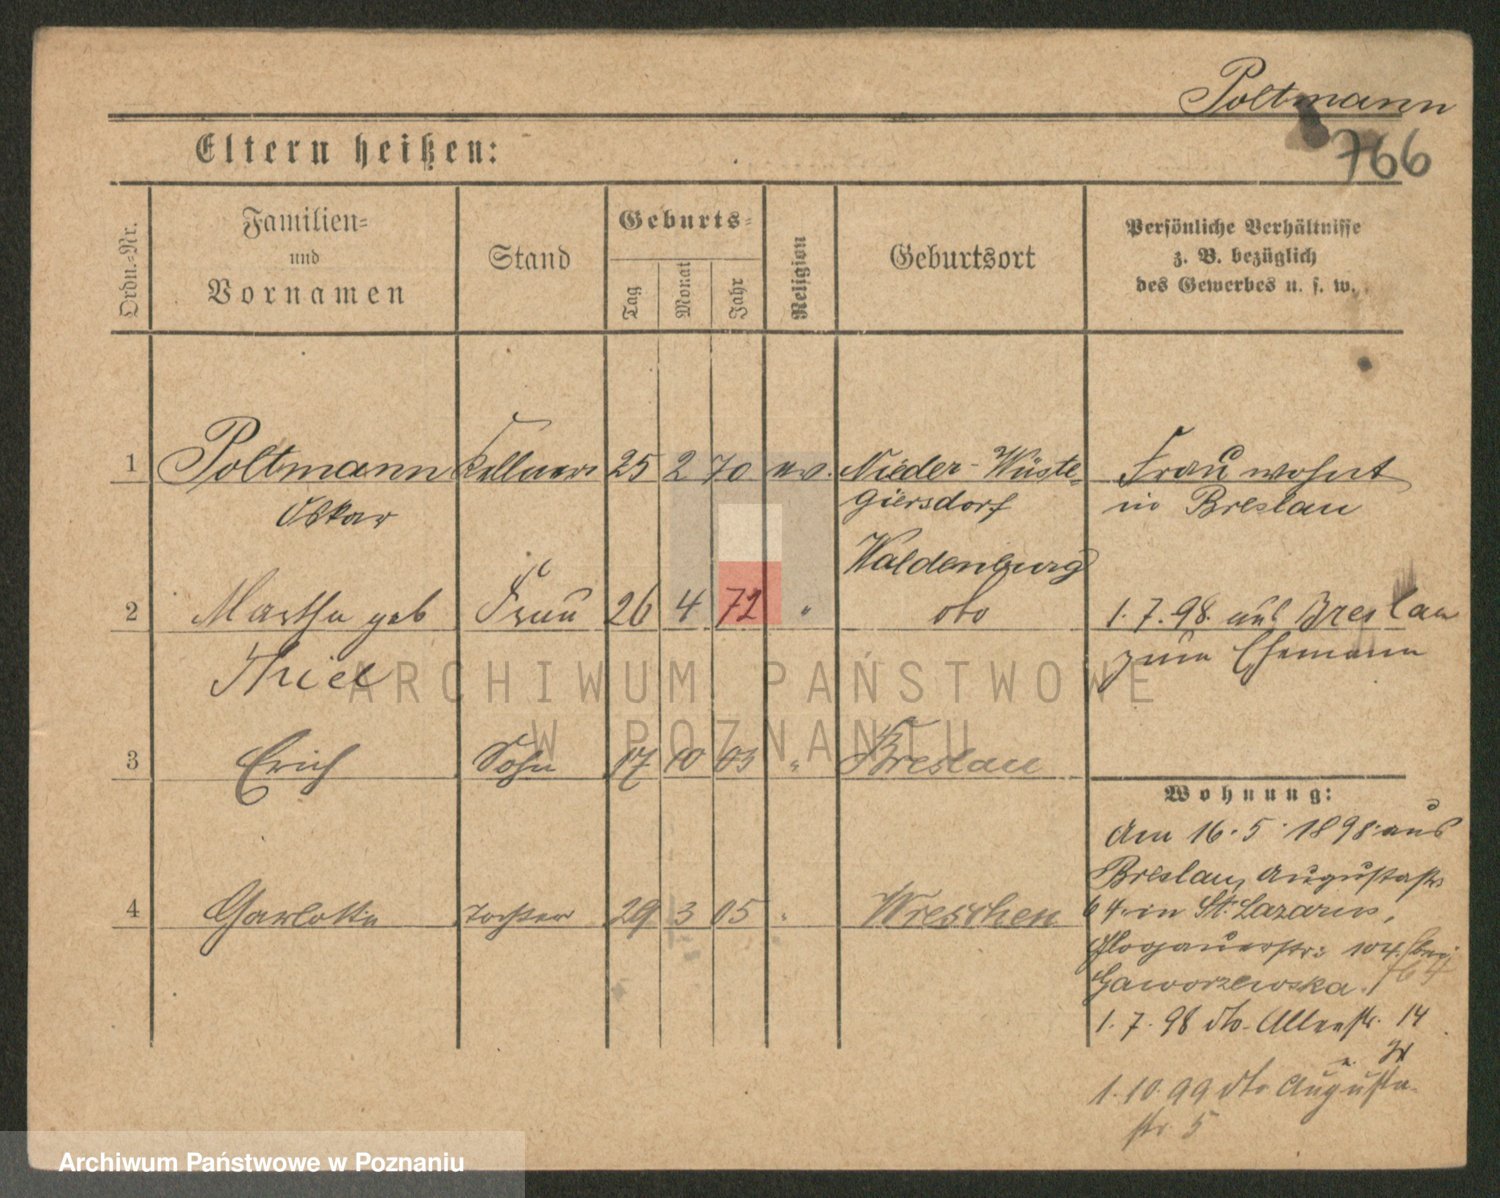 Poltmann
766
Eltern heißen:
Ordn.-Nr.
Familien-
und
Vornamen
Stand
Geburts-
Tag
Monat
Jahr
Religion
Geburtsort
Persönliche Verhältnisse
z. B. bezüglich
des Gewerbes u. s. w.
1 Poltmann Kellner 25 2 70 ev. Nieder-Wüste- Frau wohnt
Oskar giersdorf in Breslau
Waldenburg
2 Martha geb Frau 26 4 72 " dto 1.7.98. aus Breslau
Thiel zum Ehemann
ARCHIWUM PAŃSTWOWE
W POZNANIU
3 Erich Sohn 17 10 03 " Breslau
Wohnung:
Am 16.5.1898 aus
Breslau, Augustastr
64 in St. Lazarus,
4 Charlotte Tochter 29 3 05 " Wreschen
Glogauerstr: 104 bei
Gaworzewska. 764
1.7.98 dto. 14
1.10.99 dto Augusta-
str. 5
Archiwum Państwowe w Poznaniu